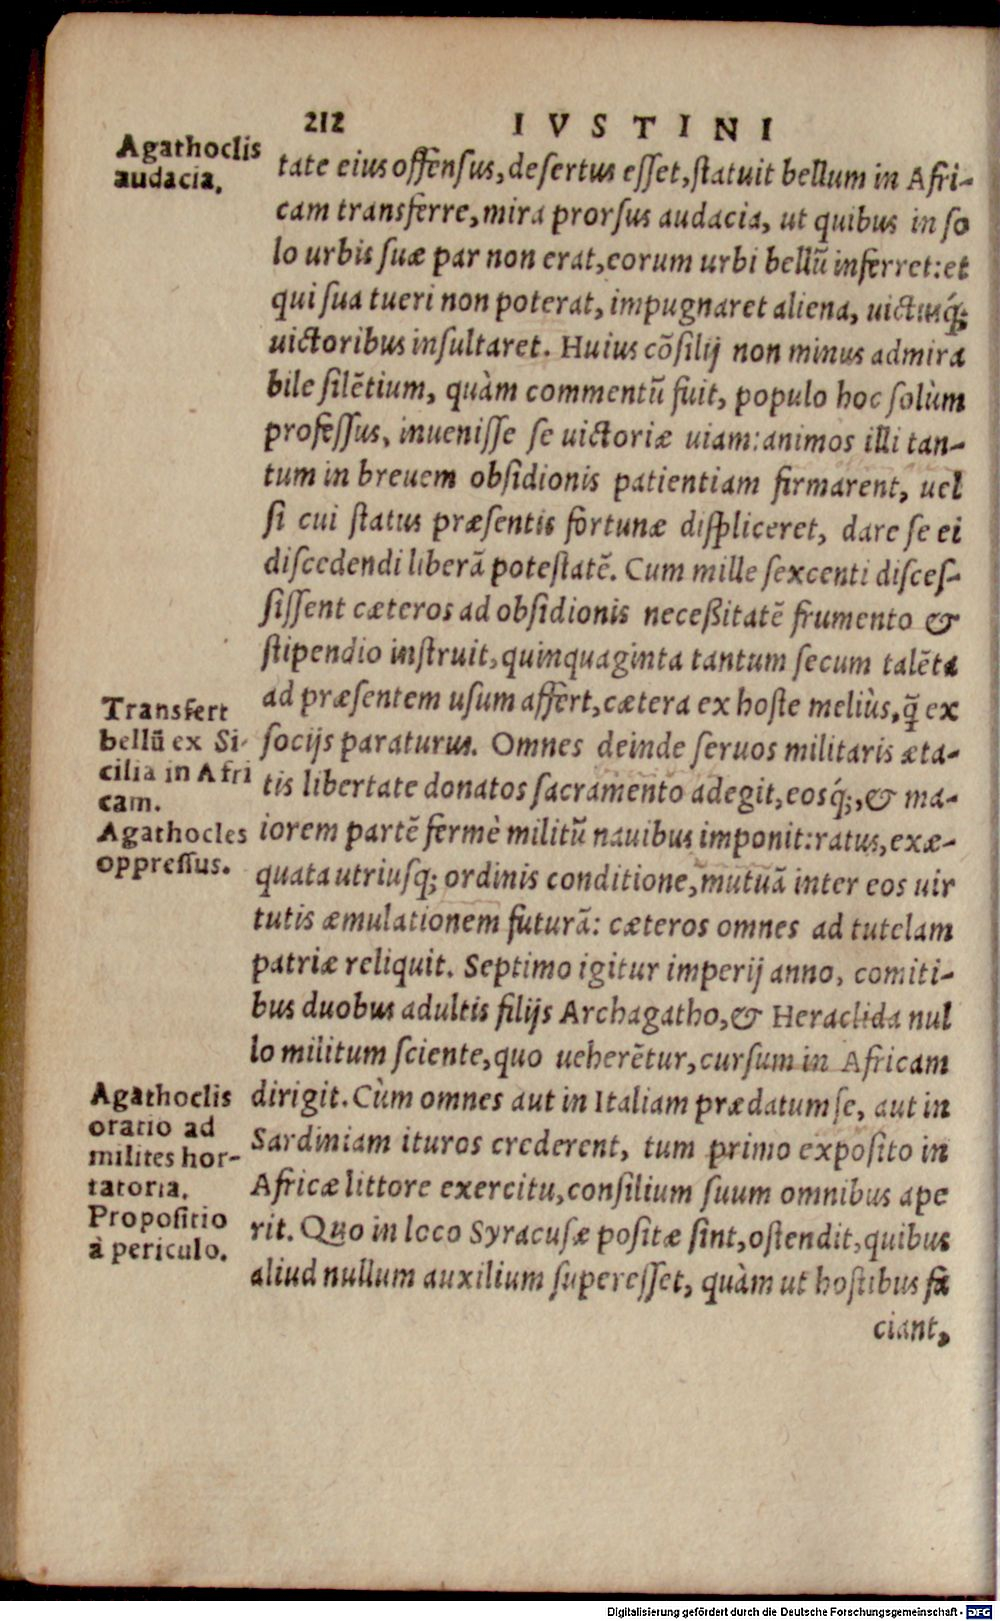 212 IVSTINI
Agathoclis
audacia.
tate eius offensus, desertus esset, statuit bellum in Afri-
cam transferre, mira prorsus audacia, ut quibus in so
lo urbis suæ par non erat, eorum urbi bellũ inferret: et
qui sua tueri non poterat, impugnaret aliena, uictusq́;
uictoribus insultaret. Huius cõsilij non minus admira
bile silẽtium, quàm commentũ fuit, populo hoc solùm
professus, inuenisse se uictoriæ uiam: animos illi tan-
tum in breuem obsidionis patientiam firmarent, uel
si cui status præsentis fortunæ displiceret, dare se ei
discedendi liberã potestatẽ. Cum mille sexcenti disces-
sissent cæteros ad obsidionis neceßitatẽ frumento &
stipendio instruit, quinquaginta tantum secum talẽta
ad præsentem usum affert, cætera ex hoste meliùs, q̃ ex
socijs paraturus. Omnes deinde seruos militaris æta-
tis libertate donatos sacramento adegit, eosq́;, & ma-
iorem partẽ fermè militũ nauibus imponit: ratus, exæ-
quata utriusq; ordinis conditione, mutuã inter eos uir
tutis æmulationem futurã: cæteros omnes ad tutelam
patriæ reliquit. Septimo igitur imperij anno, comiti-
bus duobus adultis filijs Archagatho, & Heraclida nul
lo militum sciente, quo ueherẽtur, cursum in Africam
dirigit. Cùm omnes aut in Italiam prædatum se, aut in
Sardiniam ituros crederent, tum primo exposito in
Africæ littore exercitu, consilium suum omnibus ape
rit. Quo in loco Syracusæ positæ sint, ostendit, quibus
aliud nullum auxilium superesset, quàm ut hostibus fa
ciant,
Transfert
bellũ ex Si-
cilia in Afri
cam.
Agathocles
oppressus.
Agathoclis
oratio ad
milites hor-
tatoria.
Propositio
à periculo.
Digitalisierung gefördert durch die Deutsche Forschungsgemeinschaft - DFG